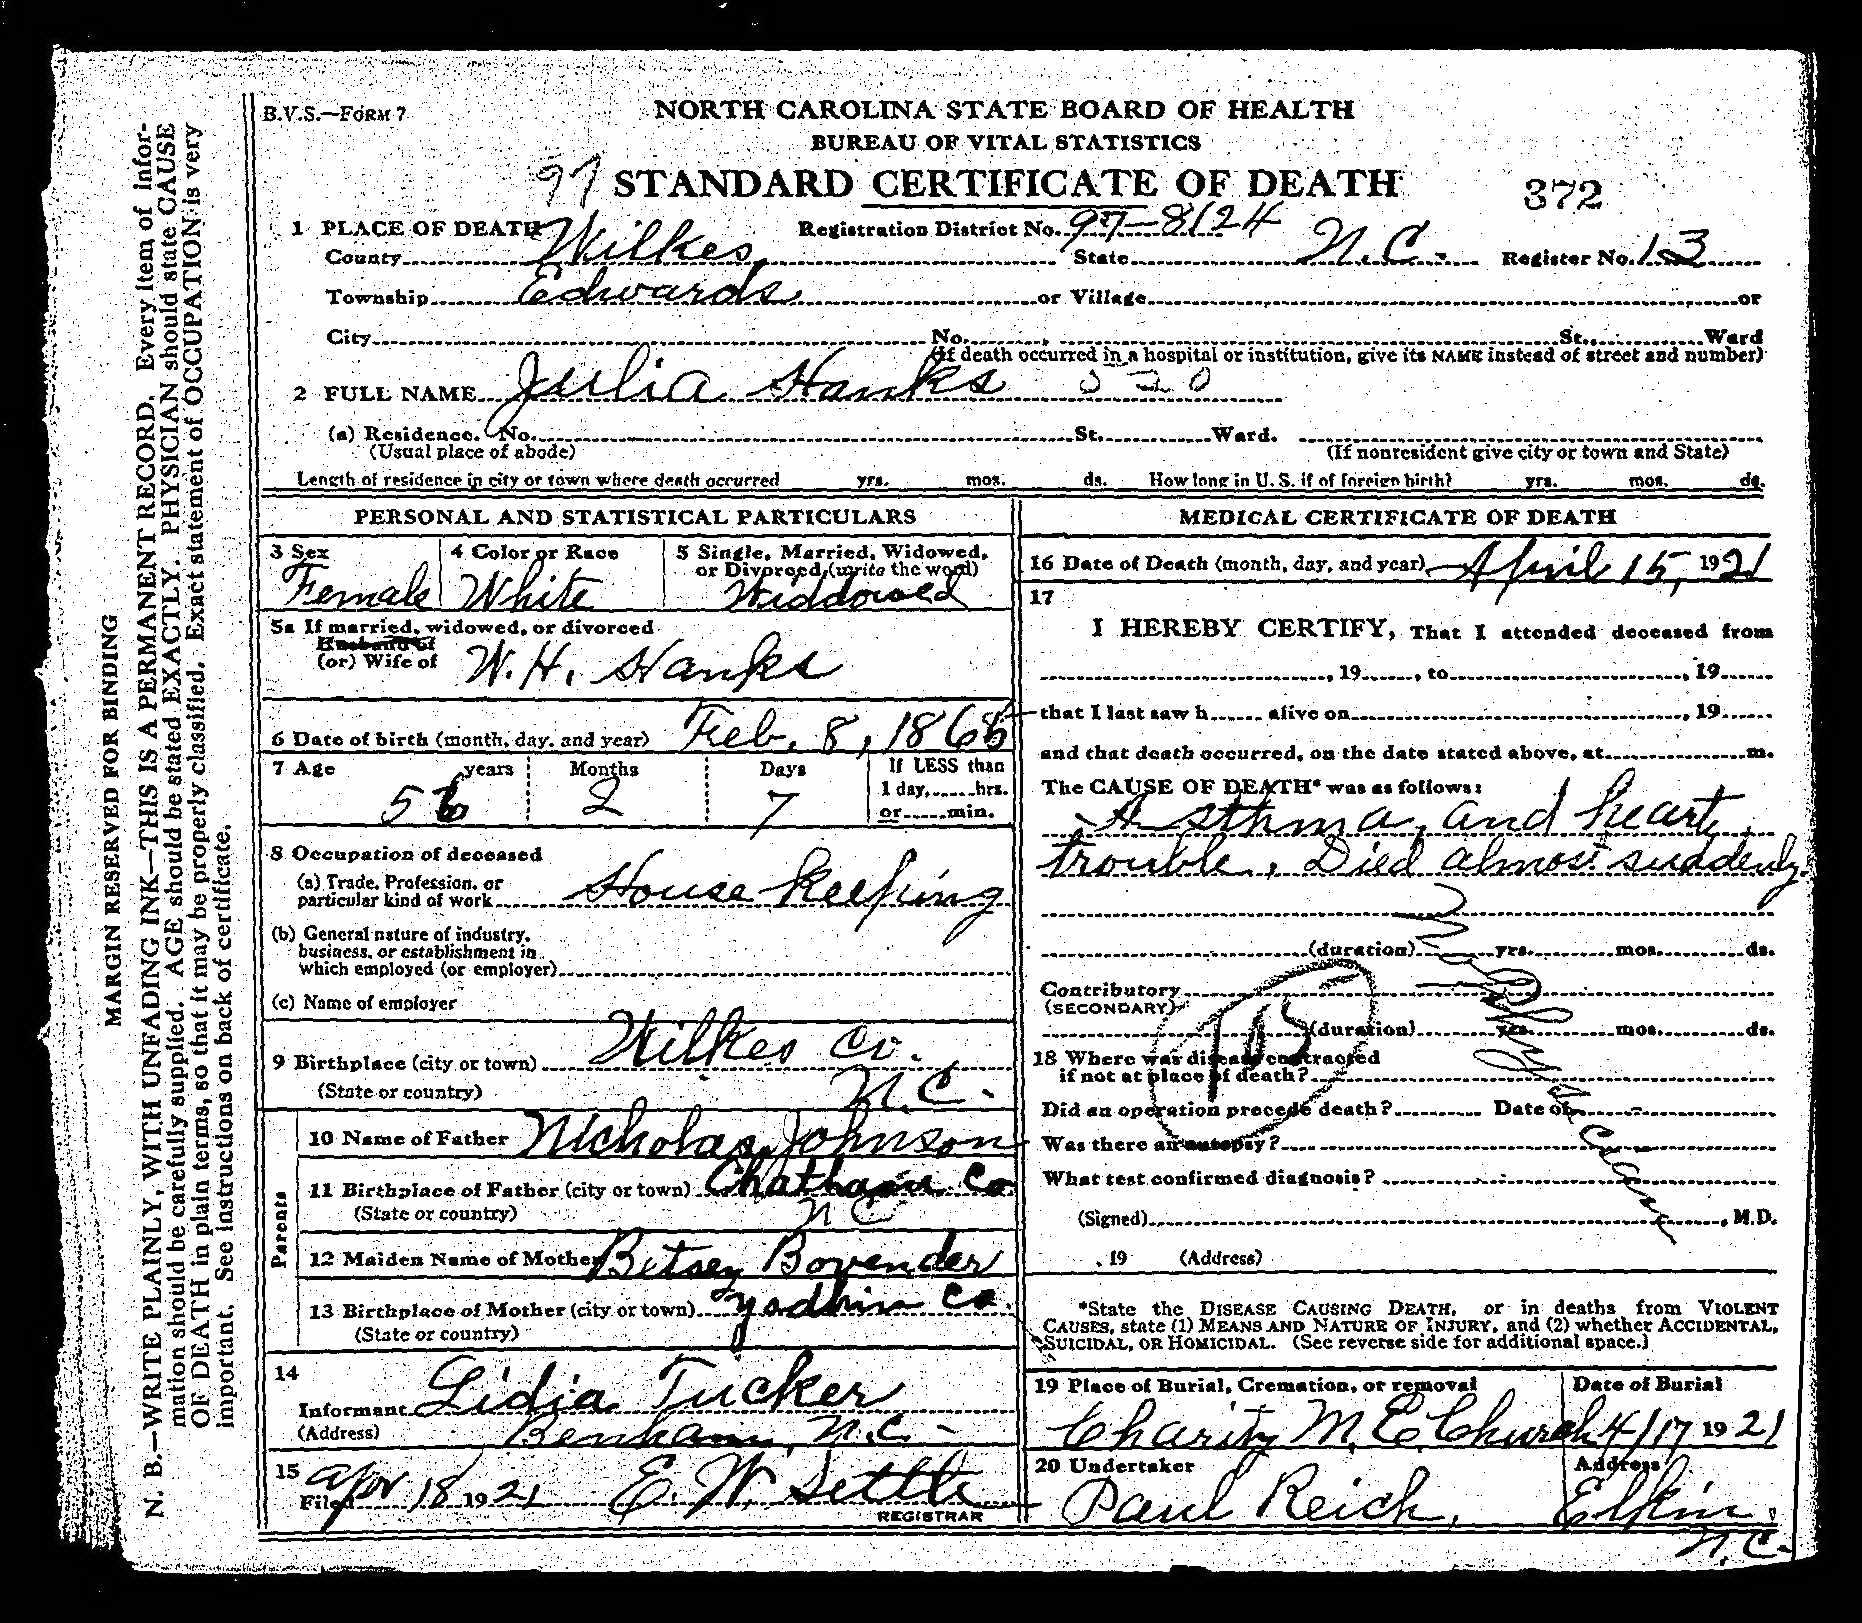 B.V.S.—FORM 7
NORTH CAROLINA STATE BOARD OF HEALTH
BUREAU OF VITAL STATISTICS
97 STANDARD CERTIFICATE OF DEATH 372
1 PLACE OF DEATH Registration District No. 97-8124
County Wilkes State N.C. Register No. 13
Township Edwards or Village or
City No. St. Ward
(If death occurred in a hospital or institution, give its NAME instead of street and number)
2 FULL NAME Julia Hanks
(a) Residence. No. St. Ward.
(Usual place of abode) (If nonresident give city or town and State)
Length of residence in city or town where death occurred yrs. mos. ds. How long in U. S. if of foreign birth? yrs. mos. ds.
PERSONAL AND STATISTICAL PARTICULARS
3 Sex 4 Color or Race 5 Single, Married, Widowed,
or Divorced (write the word)
Female White Widdowed
5a If married, widowed, or divorced
Husband of
(or) Wife of W. H. Hanks
6 Date of birth (month, day, and year) Feb. 8, 1865
7 Age years Months Days If LESS than
1 day, hrs.
or min.
56 2 7
8 Occupation of deceased
(a) Trade, Profession, or
particular kind of work House keeping
(b) General nature of industry,
business, or establishment in
which employed (or employer)
(c) Name of employer
9 Birthplace (city or town) Wilkes Co.
(State or country) N.C.
Parents
10 Name of Father Nicholas Johnson
11 Birthplace of Father (city or town) Chatham Co
(State or country) N C
12 Maiden Name of Mother Betsey Bovender
13 Birthplace of Mother (city or town) Yadkin Co
(State or country)
14
Informant Lidia Tucker
(Address) Benham, N.C.
15 Filed Apr 18 1921 E. W. Settle
REGISTRAR
MEDICAL CERTIFICATE OF DEATH
16 Date of Death (month, day, and year) April 15, 1921
17
I HEREBY CERTIFY, That I attended deceased from
, 19 , to , 19
that I last saw h alive on , 19
and that death occurred, on the date stated above, at m.
The CAUSE OF DEATH* was as follows:
Asthma, and heart
trouble, Died almost suddenly.
(duration) yrs. mos. ds.
Contributory
(SECONDARY)
(duration) yrs. mos. ds.
18 Where was disease contracted
if not at place of death?
Did an operation precede death? Date of
Was there an autopsy?
What test confirmed diagnosis?
(Signed) , M.D.
, 19 (Address)
*State the DISEASE CAUSING DEATH, or in deaths from VIOLENT
CAUSES, state (1) MEANS AND NATURE OF INJURY, and (2) whether ACCIDENTAL,
SUICIDAL, OR HOMICIDAL. (See reverse side for additional space.)
19 Place of Burial, Cremation, or removal Date of Burial
Charity M. E. Church 4/17 1921
20 Undertaker Address
Paul Reich, Elkin,
N.C.
MARGIN RESERVED FOR BINDING
N. B.—WRITE PLAINLY, WITH UNFADING INK—THIS IS A PERMANENT RECORD. Every item of infor-
mation should be carefully supplied. AGE should be stated EXACTLY. PHYSICIAN should state CAUSE
OF DEATH in plain terms, so that it may be properly classified. Exact statement of OCCUPATION is very
important. See instructions on back of certificate.